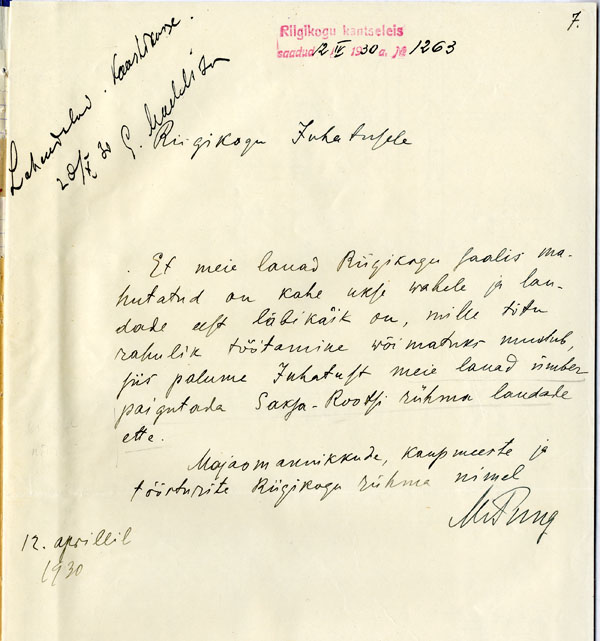 7.
Riigikogu kantseleis
saadud 12 IV 1930 a. № 1263
Lahendatud.
Riigikogu Juhatusele
Et meie lauad Riigikogu saalis ma-
hutatud on kahe ukse wahele ja lau-
dade eest läbikäik on, mille tõttu
rahulik töötamine wõimatuks muutub,
siis palume Juhatust meie lauad ümber
paigutada Saksa-Rootsi rühma laudade
ette.
Majaomannikkude, kaupmeeste ja
töösturite Riigikogu rühma nimel
M. Pung
12. aprillil
1930